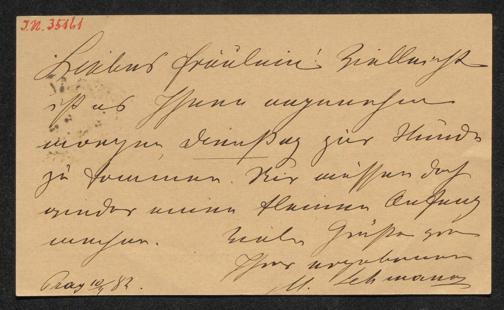 I.N. 35161
Liebes Fräulein! Vielleicht
ist es Ihnen angenehm
morgen Dienstag zur Stunde
zu kommen. Wir müssen doch
wieder einen kleinen Anfang
machen. Viele Grüße von
Ihrer ergebenen
Prag 10/9 82.